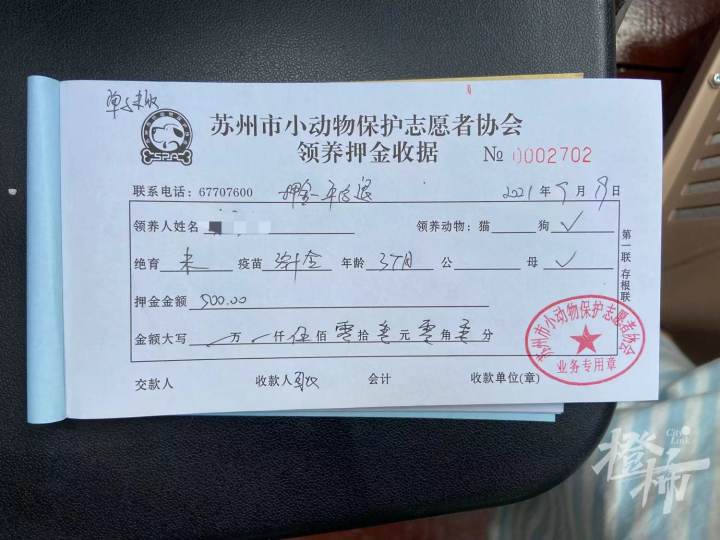 单子未收
SPAC
苏州市小动物保护志愿者协会
领养押金收据 № 0002702
联系电话：67707600 押金一年后退 2021年9月19日
领养人姓名 领养动物：猫 狗✓
绝育 未 疫苗 年龄 3个月 公 母✓
押金金额 500.00
金额大写 万 仟 伍佰 零拾 零元 零角 零分
交款人 收款人 会计 收款单位(章)
第一联 存根联
苏州市小动物保护志愿者协会
业务专用章
City Link
橙柿